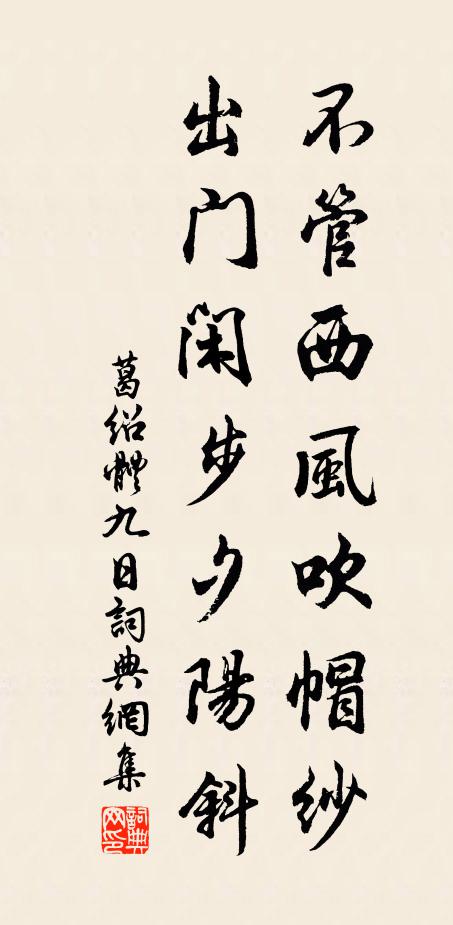 不管西風吹帽紗
出门闲步夕陽斜
葛绍體九日詞典網集
詞典网印